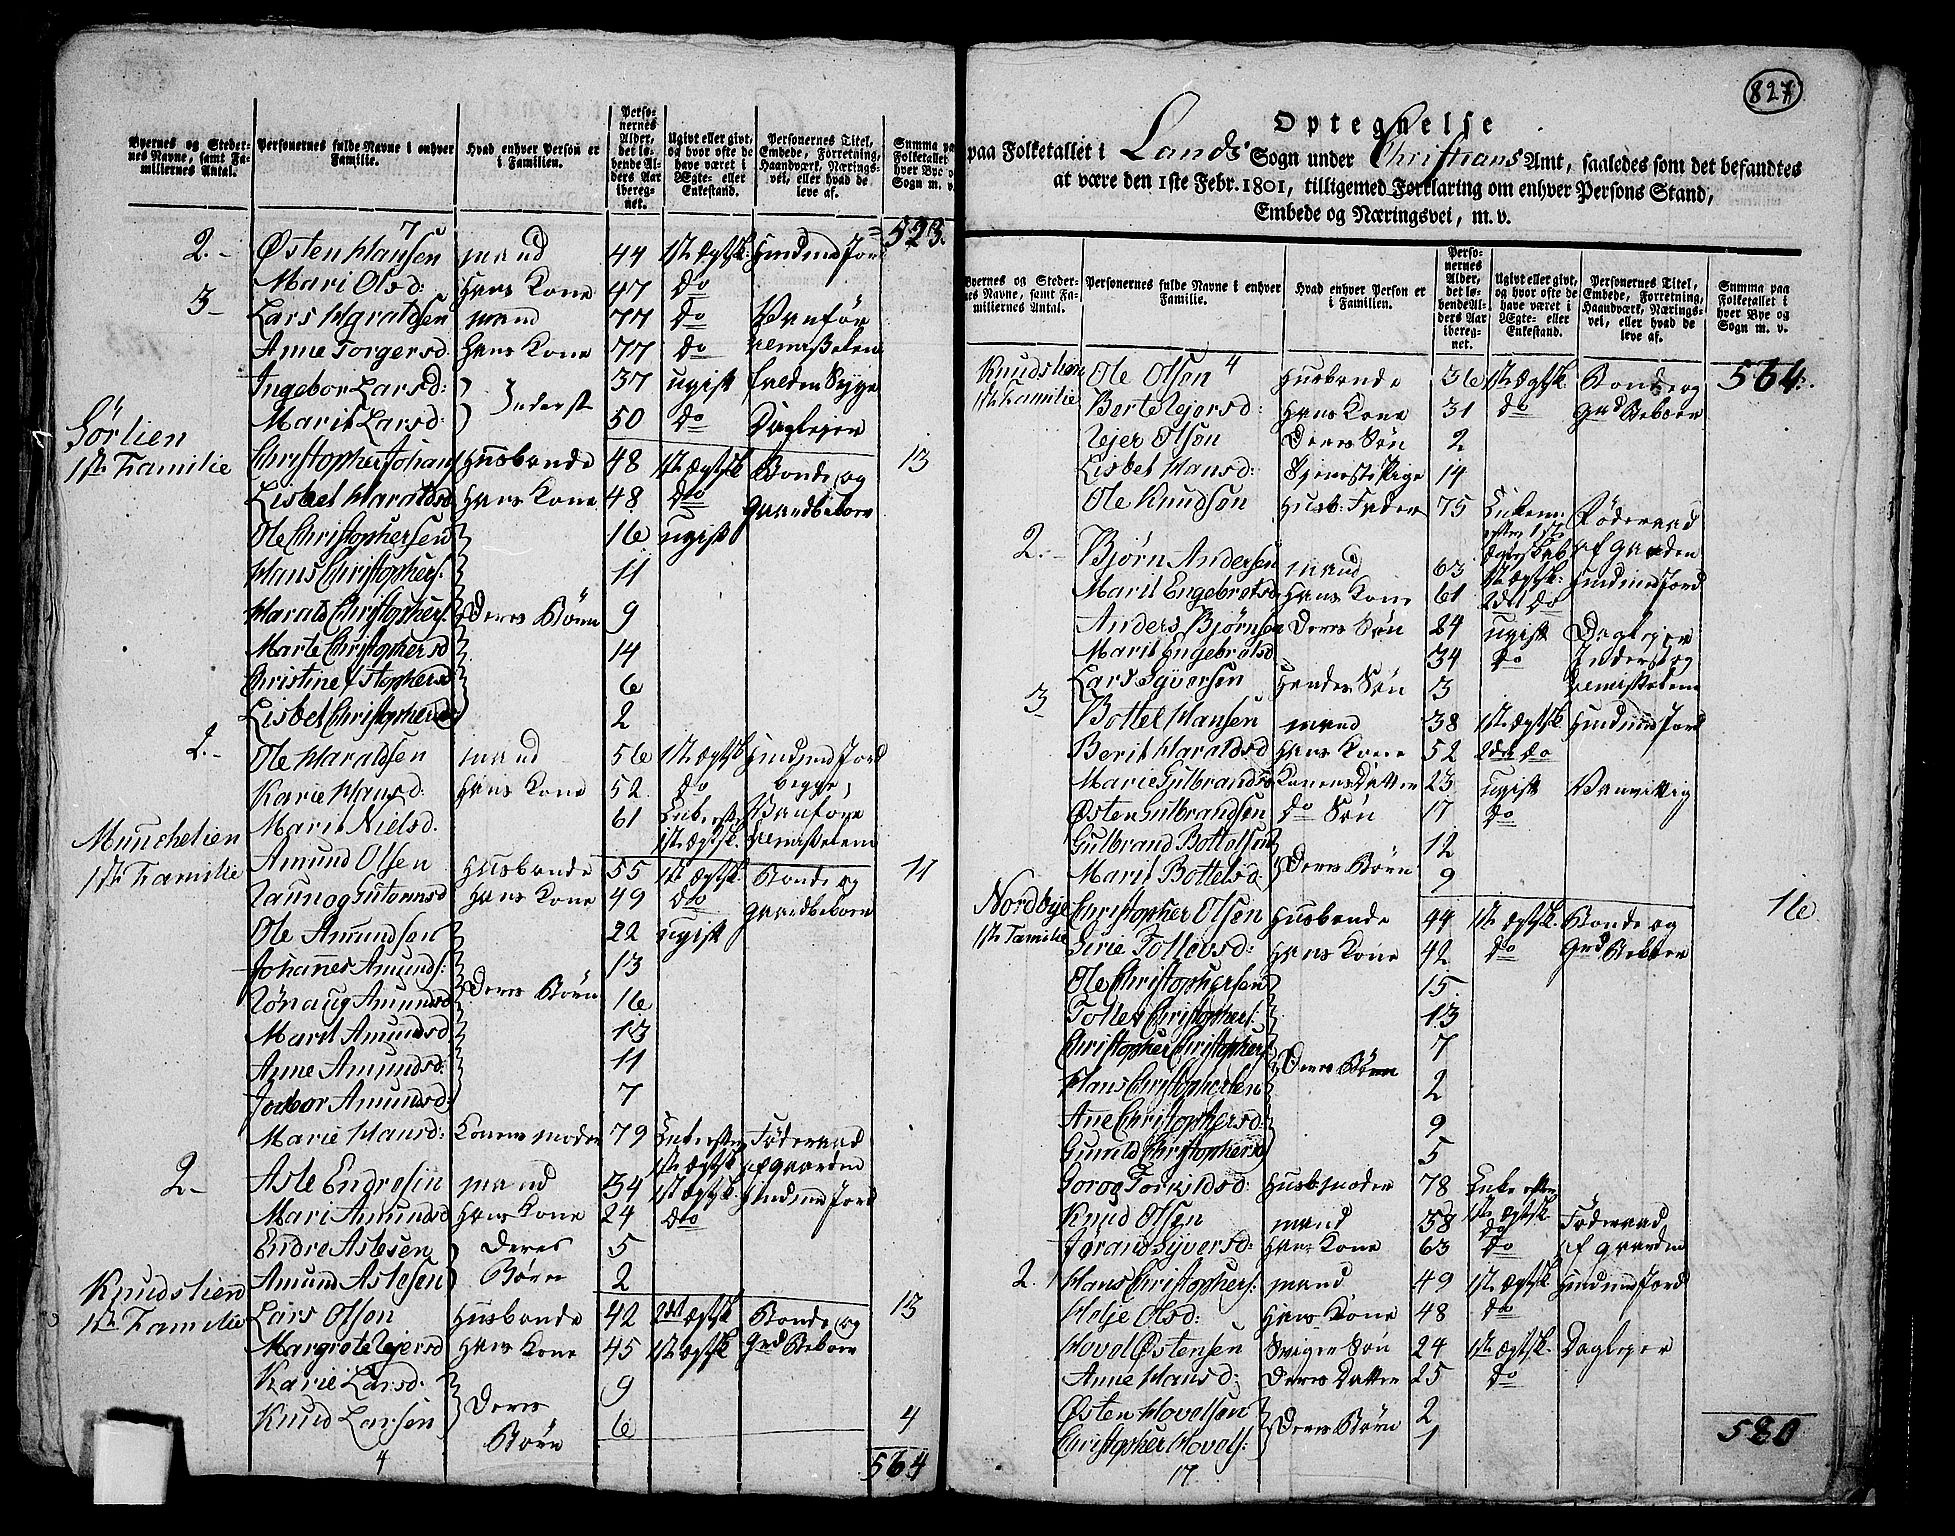 Byernes og Steder-
nes Navne, samt Fa-
miliernes Antal.
Personernes fulde Navne i enhver
Familie.
Hvad enhver Person er
i Familien.
Perso-
nernes
Alder,
det lø-
bende Al-
ders Aar
ibereg-
net.
Ugivt eller givt,
og hvor ofte de
have været i
Ægte- eller
Enkestand.
Personernes Titel,
Embede, Forretning,
Haandværk, Nærings-
vei, eller hvad de
leve af.
Summa paa
Folketallet
hver Bye o
Sogn m. v.
523.
2.- Østen Hansen mand 44 1ste Ægtsk: Huusmd Jord
Mari Olsd: Hans Kone 47 Do
3- Lars Haraldsen mand 77 Do Vanför
Anne Torgersd. Hans Kone 77 Do
Ingebor Larsd: Inderst 37 ugift
Marit Larsd: 50 Do Daglejer
Sörlien
1ste Familie Christopher Johan Husbonde 48 1ste Ægtsk Bonde og 13
Lisbet Haraldsd Hans Kone 48 Do Gaardbeboer
Ole Christophersen 16 ugift
Hans Christophers: 11
Harald Christophers: Deres Börn 9
Marte Christophersd 14
Christine Christophersd 6
Lisbet Christophersd 2
2.- Ole Haraldsen mand 56 1ste Ægtsk Huusmd Jord
Karie Hansd: Hans Kone 52 Do begge
Marit Nielsd. 61 Enke efter Vanföre
1ste Ægtsk.
Munchelien
1ste Familie Amund Olsen Husbonde 55 1ste Ægtsk. Bonde og 11
Raunog Gutormsd Hans Kone 49 Do Gaardbeboer
Ole Amundsen 22 ugift
Johannes Amunds: 13
Rönaug Amundsd Deres Börn 16
Marit Amundsd 13
Anne Amundsd: 11
Amundsd: 7
Marie Hansd: Konens moder 79 Enke efter Föderaad
1ste Ægtsk af gaarden
2- Asle Endresen mand 34 1ste Ægtsk. Huusmd Jord
Mari Amundsd Hans Kone 24 Do
Endre Aslesen Deres 5
Amund Aslesen Börn 2
Knudslien
1ste Familie Lars Olsen Husbonde 42 2det Ægtsk Bonde og 13
Margrete Rejersd Hans Kone 45 1ste Ægtsk Grd Beboer
Karie Larsd: Deres 9
Knud Larsen Börn 6 4
4
564
827
Optegnelse
paa Folketallet i Lands Sogn under Christians Amt, saaledes som det befandtes
at være den 1ste Febr. 1801, tilligemed Forklaring om enhver Persons Stand,
Embede og Næringsvei, m. v.
Byernes og Steder-
nes Navne, samt Fa-
miliernes Antal.
Personernes fulde Navne i enhver
Familie.
Hvad enhver Person er
i Familien.
Perso-
nernes
Alder,
det lø-
bende Al-
ders Aar
ibereg-
net.
Ugivt eller givt,
og hvor ofte de
have været i
Ægte- eller
Enkestand.
Personernes Titel,
Embede, Forretning,
Haandværk, Nærings-
vei, eller hvad de
leve af.
Summa paa
Folketallet i
hver Bye og
Sogn m. v.
Knudslien Ole Olsen Husbonde 36 1ste Ægtsk Bonde og 564.
1ste Familie Berte Rejersd: Hans Kone 31 Do Grd Beboer
Rejer Olsen Deres Sön 2
Lisbet Hansd: Tjeneste Pige 14
Ole Knudsen Husb: Fader 75 Enkem: Föderaad
efter 1ste
Ægteskab af gaarden
2.- Bjørn Andersen mand 63 1ste Ægtsk: Huusmd Jord
Marit Engebretsd Hans Kone 61 2det Do
Anders Bjørnsen Deres Sön 24 ugift Daglejer
Marit Engebretsd 34 Do Inderst og
Lars Syversen Hendes Sön 3
3- Bottel Hansen mand 38 1ste Ægtsk Huusmd Jord
Berit Haraldsd Hans Kone 52 2det Do
Marie Gulbrandsd Konens Datter 23 ugift Vanvittig
Østen Gulbrandsen Do Sön 17 Do
Gulbrand Bottelsen Deres Börn 12
Marit Bottelsd: 9
Nordbye Christopher Olsen Husbonde 44 1ste Ægtsk. Bonde og 16
1ste Familie Sirie Tollevsd: Hans Kone 42 Do Grd Beboer
Ole Christophersen 15
Tollev Christophers: 13
Christopher Christophers: Deres Börn 7
Hans Christophersen 2
Ane Christophersd: 9
Gunild Christophersd 5
Husb: moder 78 Enke efter
1ste Ægtsk
Knud Olsen mand 58 Do Föderaad
Jøran Syversd: Hans Kone 63 Do af gaarden
2. Hans Christophers: mand 49 1ste Ægtsk: Huusmd Jord
Helje Olsd: Hans Kone 48 Do
Hovel Østensen Sviger Sön 24 1ste Ægtsk. Daglejer
Anne Hansd: Deres Datter 25 Do
Østen Hovelsen Deres Börn 2
Christopher Hovels: 1
17.
580